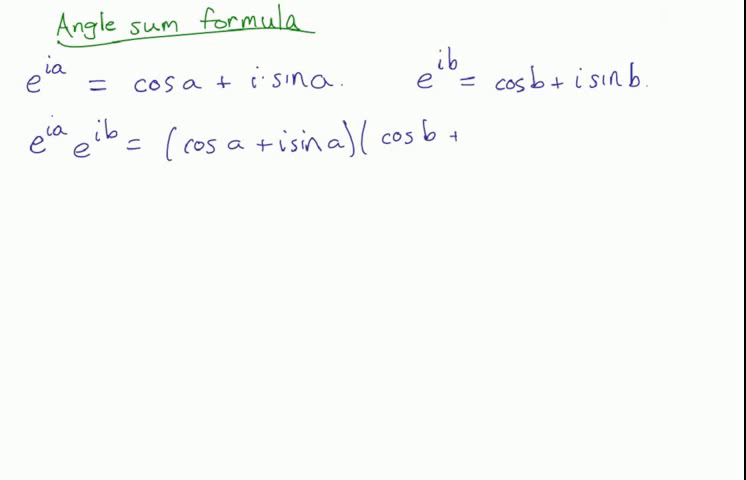 Angle sum formula
e^{ia} = cos a + i·sin a. e^{ib} = cos b + i sin b.
e^{ia} e^{ib} = (cos a + i sin a)(cos b +